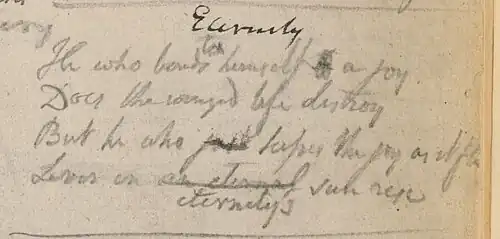 Eternity
to
He who binds himself a joy
Does the winged life destroy
But he who just kisses the joy as it flies
Lives in an eternal sun rise
eternitys